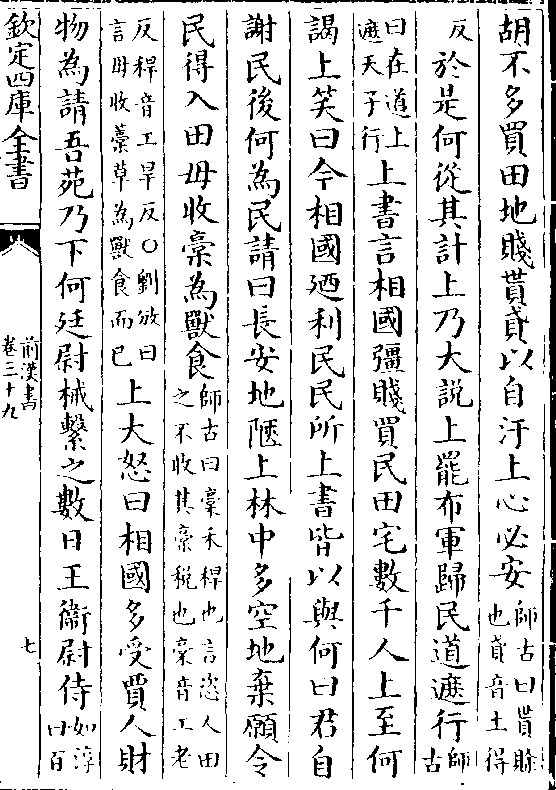 胡不多買田地賤貰貣以自汙上心必安師古曰貰賖也貣音土得
反於是何從其計上乃大説上罷布軍歸民道遮行師古
曰在道上遮天子行上書言相國彊賤買民田宅數千人上至何
謁上笑曰今相國廼利民民所上書皆以與何曰君自
謝民後何為民請曰長安地陿上林中多空地棄願令
民得入田毋收稾為獸食師古曰稾禾稈也言恣人田之不收其稾税也稾音工老
反稈音工旱反○劉攽曰言毋收藁草為獸食而已上大怒曰相國多受賈人財
物為請吾苑乃下何廷尉械繫之數日王衛尉侍如淳曰百
欽定四庫全書
前漢書
卷三十九
七